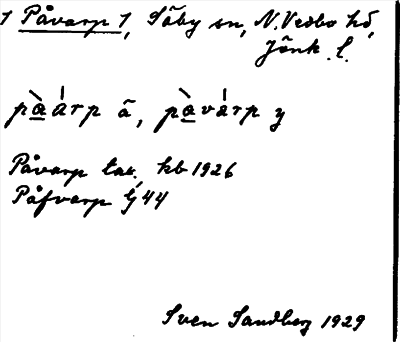 1 Påvarp 1, Säby sn, N. Vedbo hd,
Jönk. l.
pàárp ä, pàvárp y
Påvarp tax. kb 1926
Påfvarp Gj 44
Sven Sandberg 1929